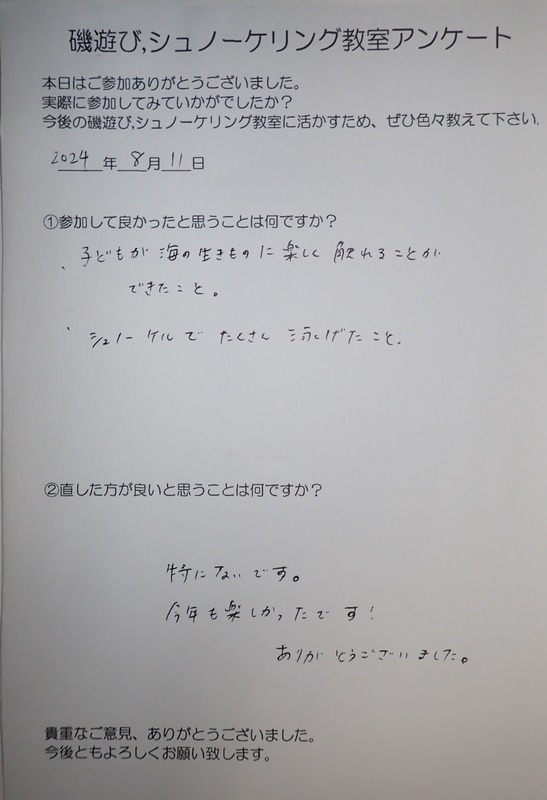 磯遊び,シュノーケリング教室アンケート
本日はご参加ありがとうございました。
実際に参加してみていかがでしたか？
今後の磯遊び,シュノーケリング教室に活かすため、ぜひ色々教えて下さい.
2024年8月11日
①参加して良かったと思うことは何ですか？
、子どもが 海の生きものに 楽しく 触れることが
できたこと。
、シュノーケルで たくさん 泳げたこと.
②直した方が良いと思うことは何ですか？
特にないです。
今年も楽しかったです！
ありがとうございました。
貴重なご意見、ありがとうございました。
今後ともよろしくお願い致します。